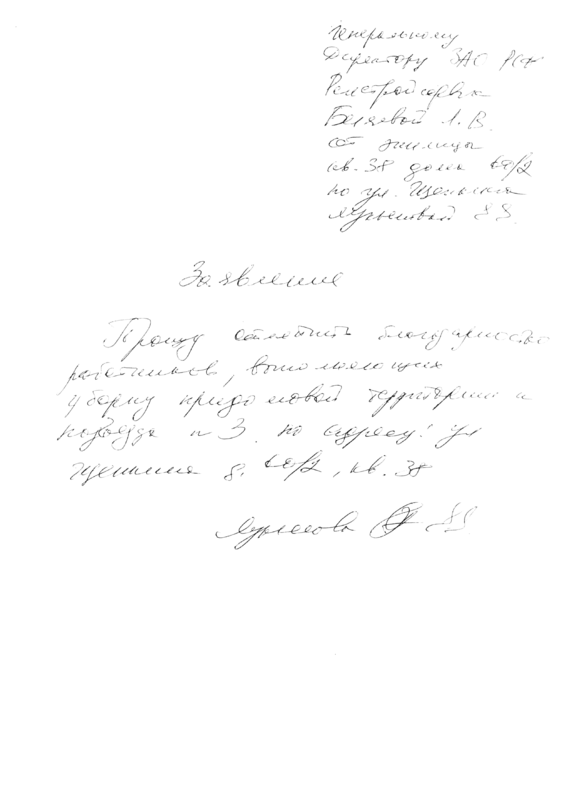 Генеральному
Директору ЗАО РСФ
Ремстройсервис
Беляевой Л. В.
от жилицы
кв. 38 дома 60/2
по ул. Щепкина
Заявление
Прошу отметить благодарностью
работников, выполняющих
уборку придомовой территории и
подъезда н 3 по адресу: ул
Щепкина д. 60/2, кв. 38